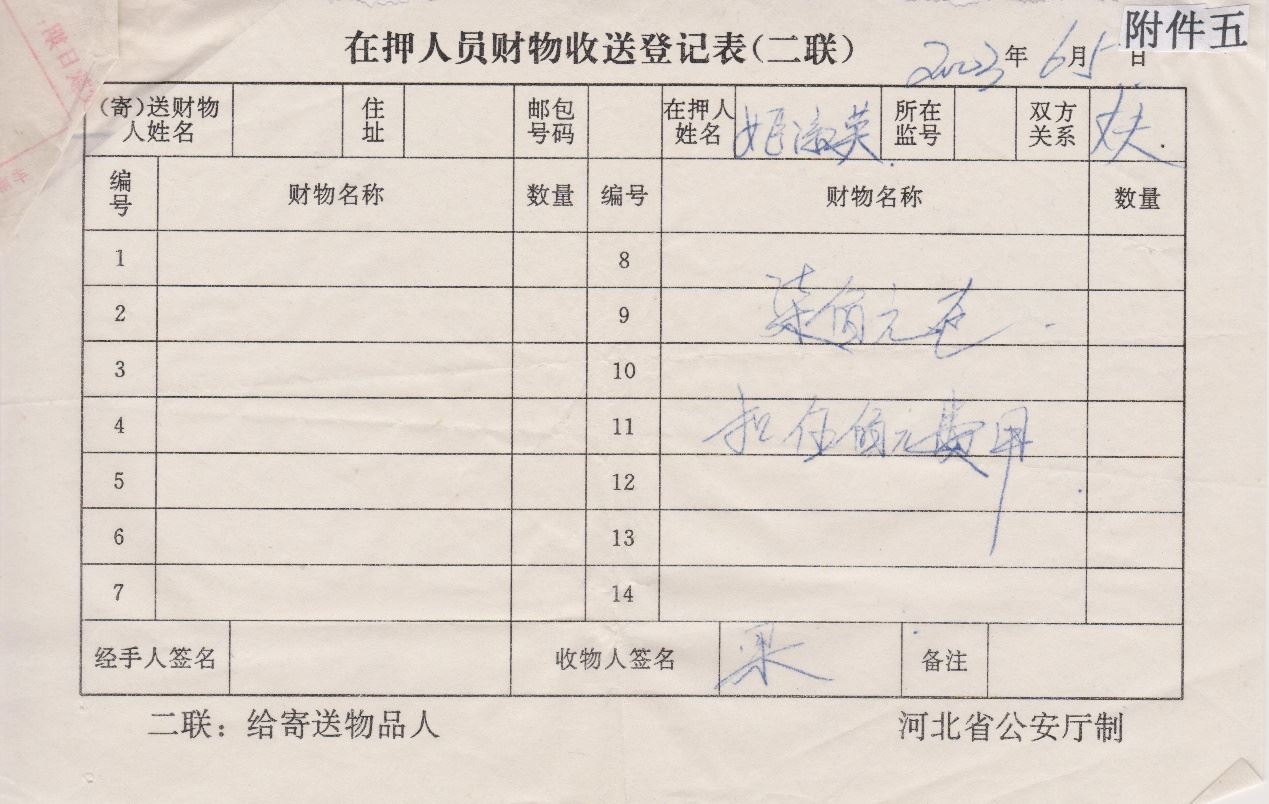 附件五
在押人员财物收送登记表(二联)
2003年6月5日
(寄)送财物人姓名 住址 邮包号码 在押人姓名 姬淑英 所在监号 双方关系 丈夫
编号 财物名称 数量 编号 财物名称 数量
1 8
2 9 柒佰元
3 10
4 11 扣伍佰元费用
5 12
6 13
7 14
经手人签名 收物人签名 备注
二联：给寄送物品人 河北省公安厅制